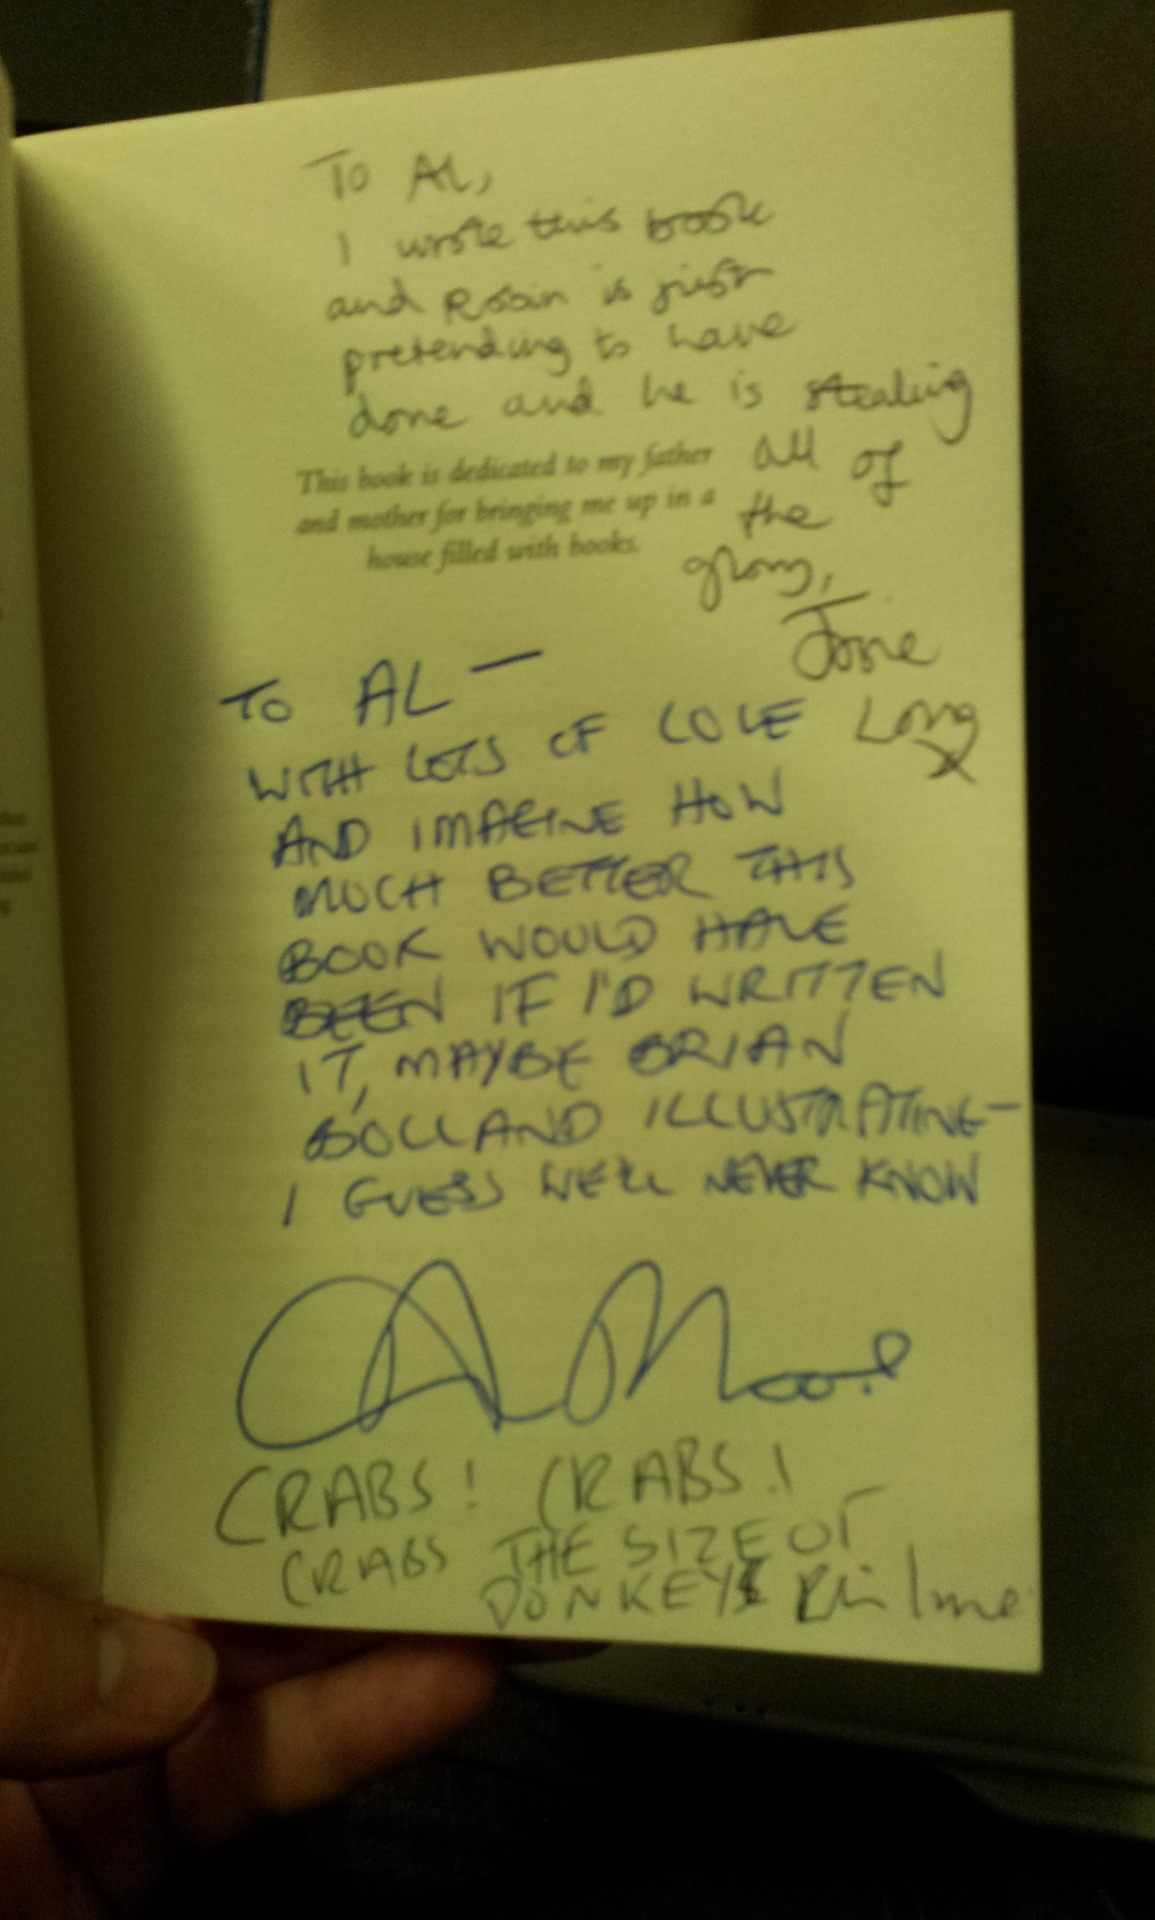 TO AL,
I wrote this book
and Robin is just
pretending to have
done and he is stealing
all of
the
glory,
Josie
Long
X
This book is dedicated to my father
and mother for bringing me up in a
house filled with books.
TO AL —
WITH LOTS OF LOVE
AND IMAGINE HOW
MUCH BETTER THIS
BOOK WOULD HAVE
BEEN IF I'D WRITTEN
IT, MAYBE BRIAN
BOLLAND ILLUSTRATING—
I GUESS WE'LL NEVER KNOW
CRABS! CRABS!
CRABS THE SIZE OF
DONKEYS